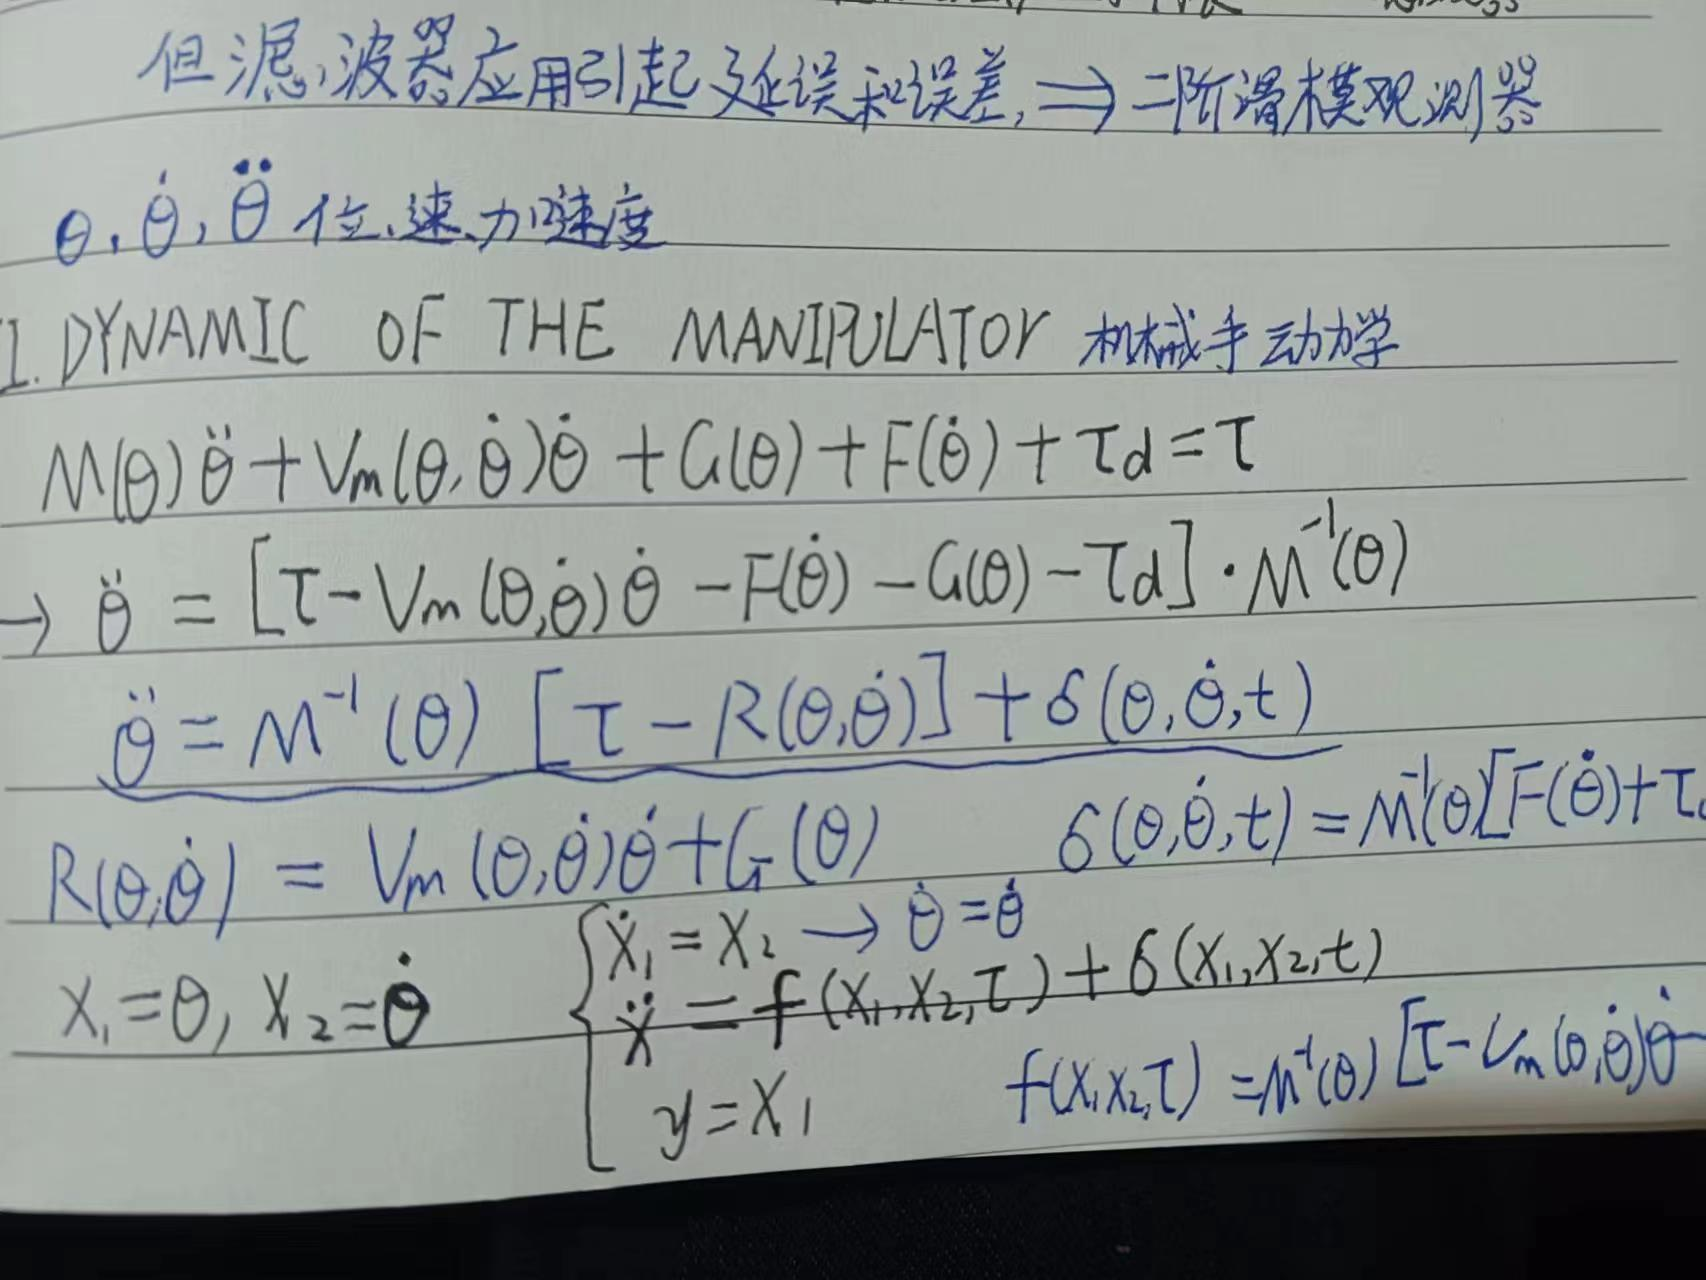 但滤波器应用引起延误和误差, ⇒ 二阶滑模观测器
θ, θ̇, θ̈ 位、速、加速度
I. DYNAMIC OF THE MANIPULATOR 机械手动力学
M(θ)θ̈ + Vm(θ,θ̇)θ̇ + G(θ) + F(θ̇) + τd = τ
→ θ̈ = [τ - Vm(θ,θ̇)θ̇ - F(θ̇) - G(θ) - τd] · M⁻¹(θ)
θ̈ = M⁻¹(θ) [τ - R(θ,θ̇)] + δ(θ,θ̇,t)
R(θ,θ̇) = Vm(θ,θ̇)θ̇ + G(θ) δ(θ,θ̇,t) = M⁻¹(θ)[F(θ̇) + τ
x₁ = θ, x₂ = θ̇
{ ẋ₁ = x₂ → θ̇ = θ̇
ẍ = f(x₁,x₂,τ) + δ(x₁,x₂,t)
y = x₁
f(x₁x₂,τ) = M⁻¹(θ) [τ - Vm(θ,θ̇)θ̇ -